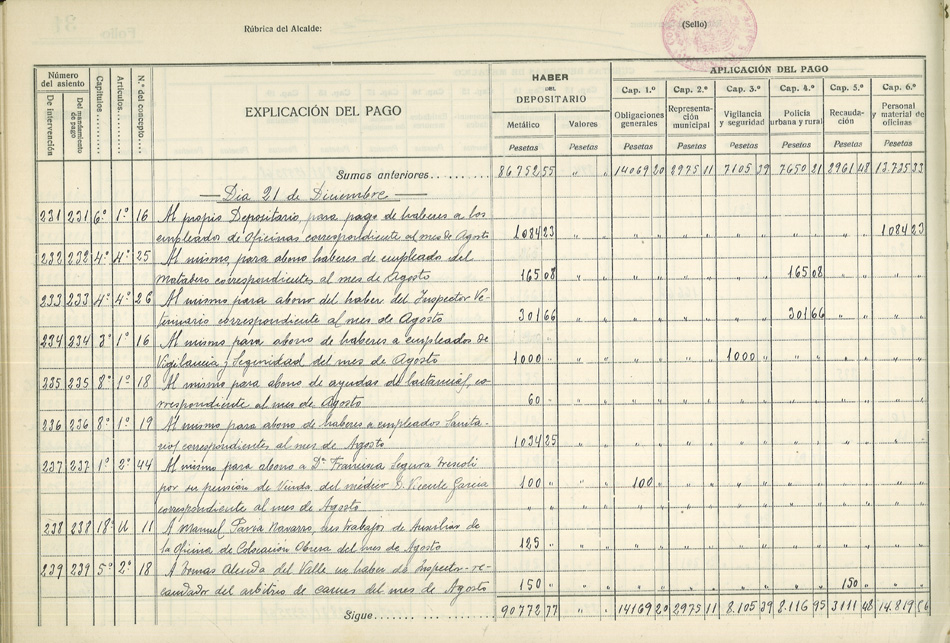 Rúbrica del Alcalde:
(Sello)
Número del asiento
De intervención
Del mandamiento de pago
Capítulos
Artículos
N.º del concepto
EXPLICACIÓN DEL PAGO
HABER DEL DEPOSITARIO
Metálico
Valores
Pesetas
Pesetas
APLICACIÓN DEL PAGO
Cap. 1.º Cap. 2.º Cap. 3.º Cap. 4.º Cap. 5.º Cap. 6.º
Obligaciones generales
Representación municipal
Vigilancia y seguridad
Policía urbana y rural
Recaudación
Personal y material de oficinas
Pesetas Pesetas Pesetas Pesetas Pesetas Pesetas
Sumas anteriores 86752 55 " " 14069 20 2975 11 7105 39 7650 21 2961 48 13.735 33
Dia 21 de Diciembre
231 231 6º 1º 16 Al propio Depositario, para pago de haberes a los
empleados de Oficinas correspondiente al mes de Agosto 1084 23 1084 23
232 232 4º 4º 25 Al mismo, para abono haberes de empleado del
Matadero correspondientes al mes de Agosto 165 08 165 08
233 233 4º 4º 26 Al mismo para abono del haber del Inspector Ve-
terinario correspondiente al mes de Agosto 301 66 301 66
234 234 3º 1º 16 Al mismo para abono de haberes a empleados de
Vigilancia y Seguridad del mes de Agosto 1000 " 1000 "
235 235 8º 1º 18 Al mismo para abono de ayudas de lactancias, co-
rrespondiente al mes de Agosto 60 "
236 236 8º 1º 19 Al mismo para abono de haberes a empleados Sanita-
rios correspondientes al mes de Agosto 1034 25
237 237 1º 2º 44 Al mismo para abono a Dª Francisca Segura
por su pensión de Viuda del médico D. Vicente Garcia 100 " 100 "
correspondiente al mes de Agosto
238 238 18º U 11 A Manuel Navarro, sus trabajos de Auxiliar de
la Oficina de Colocación Obrera del mes de Agosto 125 "
239 239 5º 2º 18 A Tomas del Valle su haber de Inspector-re-
caudador del arbitrio de carnes del mes de Agosto 150 " 150 "
Sigue 90772 77 " " 14169 20 2975 11 8.105 39 8.116 95 3111 48 14.819